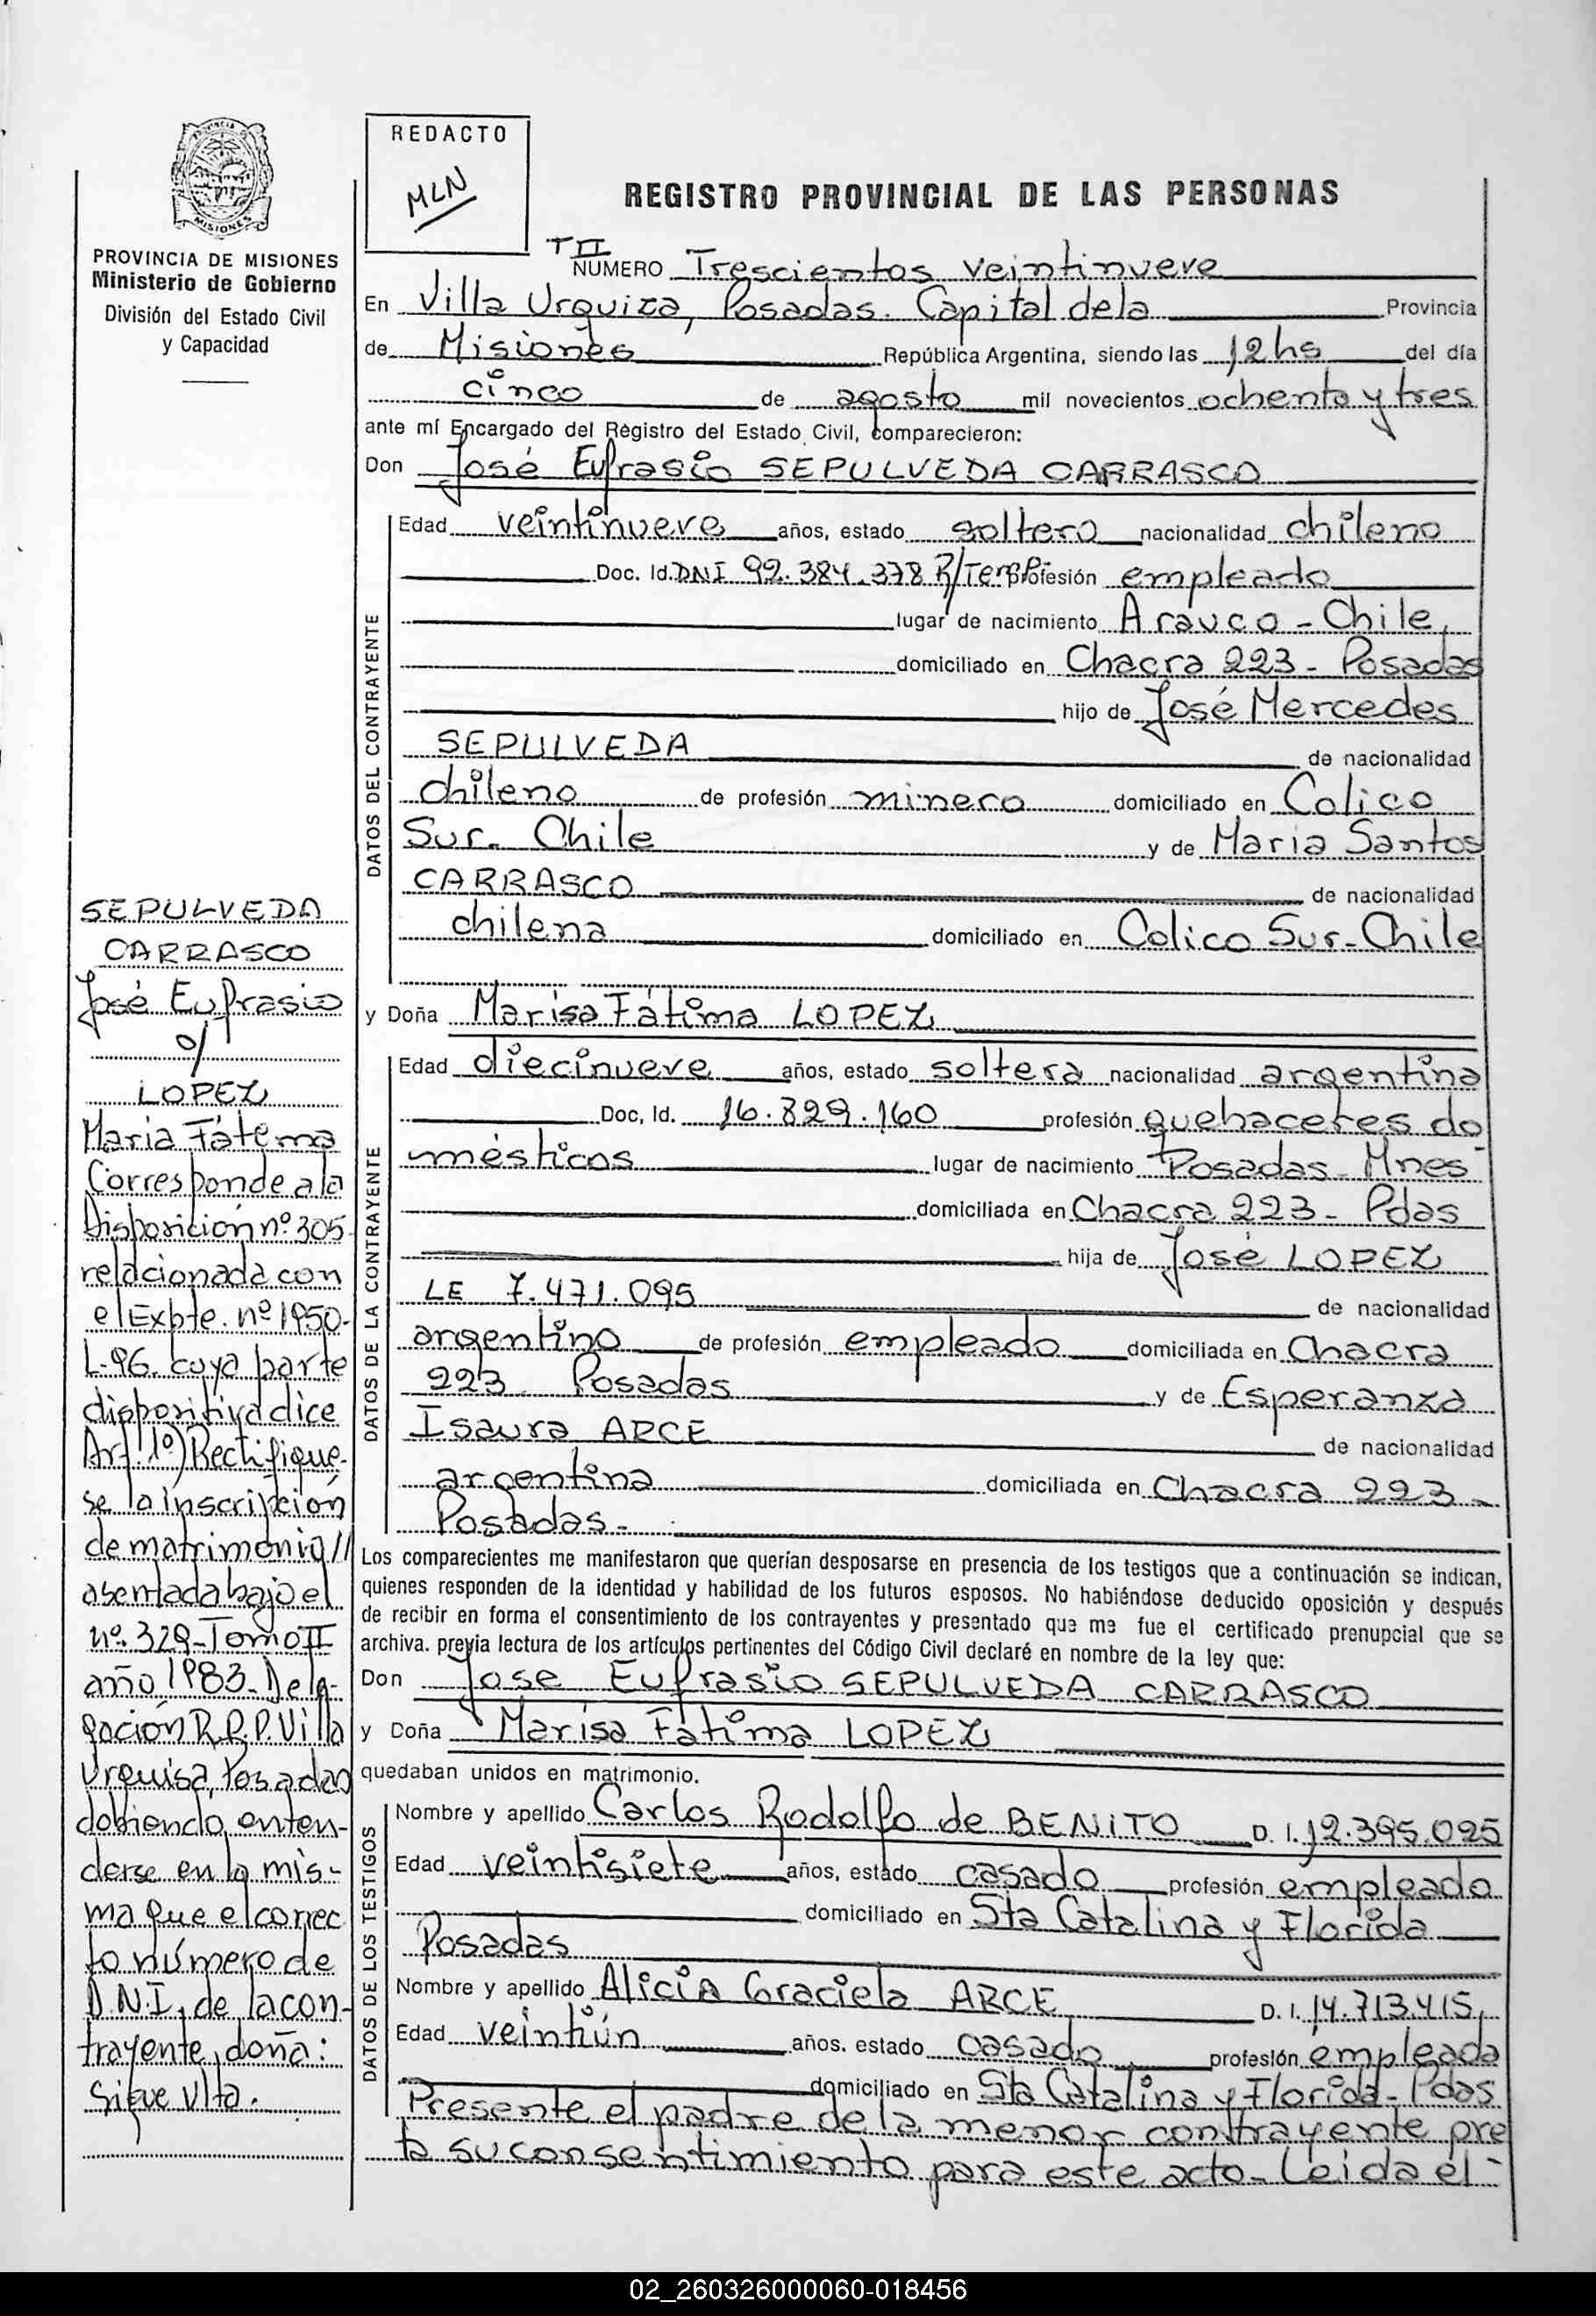 REDACTO
MLN
MISIONES
PROVINCIA DE MISIONES
Ministerio de Gobierno
División del Estado Civil
y Capacidad
REGISTRO PROVINCIAL DE LAS PERSONAS
T II
NUMERO Trescientos veintinueve
En Villa Urquiza, Posadas. Capital de la Provincia
de Misiones República Argentina, siendo las 12 hs del día
cinco de agosto mil novecientos ochenta y tres
ante mí Encargado del Registro del Estado Civil, comparecieron:
Don José Eufrasio SEPULVEDA CARRASCO
DATOS DEL CONTRAYENTE
Edad veintinueve años, estado soltero nacionalidad chileno
Doc. Id. DNI 92.384.378 R/Temp. profesión empleado
lugar de nacimiento Arauco - Chile,
domiciliado en Chacra 223 - Posadas
hijo de José Mercedes
SEPULVEDA de nacionalidad
chileno de profesión minero domiciliado en Colico
Sur. Chile y de Maria Santos
CARRASCO de nacionalidad
chilena domiciliado en Colico Sur - Chile
y Doña Marisa Fátima LOPEZ
DATOS DE LA CONTRAYENTE
Edad diecinueve años, estado soltera nacionalidad argentina
Doc, Id. 16.829.160 profesión quehaceres do
mésticos lugar de nacimiento Posadas - Mnes
domiciliada en Chacra 223 - Pdas
hija de José LOPEZ
LE 7.471.095 de nacionalidad
argentino de profesión empleado domiciliada en Chacra
223 Posadas y de Esperanza
Isaura ARCE de nacionalidad
argentina domiciliada en Chacra 223 -
Posadas -
Los comparecientes me manifestaron que querían desposarse en presencia de los testigos que a continuación se indican,
quienes responden de la identidad y habilidad de los futuros esposos. No habiéndose deducido oposición y después
de recibir en forma el consentimiento de los contrayentes y presentado que me fue el certificado prenupcial que se
archiva. previa lectura de los artículos pertinentes del Código Civil declaré en nombre de la ley que:
Don Jose Eufrasio SEPULVEDA CARRASCO
y Doña Marisa Fátima LOPEZ
quedaban unidos en matrimonio.
DATOS DE LOS TESTIGOS
Nombre y apellido Carlos Rodolfo de BENITO D. I. 12.395.025
Edad veintisiete años, estado casado profesión empleado
domiciliado en Sta Catalina y Florida
Posadas
Nombre y apellido Alicia Graciela ARCE D. I. 14.713.415,
Edad veintiún años. estado casado profesión empleada
domiciliado en Sta Catalina y Florida - Pdas
Presente el padre de la menor contrayente pre
ta su consentimiento para este acto - Leida el -
SEPULVEDA
CARRASCO
José Eufrasio
c/
LOPEZ
Maria Fátima
Corresponde a la
Disposición nº 305
relacionada con
el Expte. nº 1950-
L-96. cuya parte
dispositiva dice
Art. 1º) Rectifíque-
se la inscripción
de matrimonio //
asentada bajo el
nº. 329 - Tomo II
año 1983 - Dele-
gación R.P.P. Villa
Urquisa, Posadas
dobiendo enten-
derse en la mis-
ma que el correc
to número de
D.N.I. de la con-
trayente, doña:
Sigue Vlta.
02_260326000060-018456